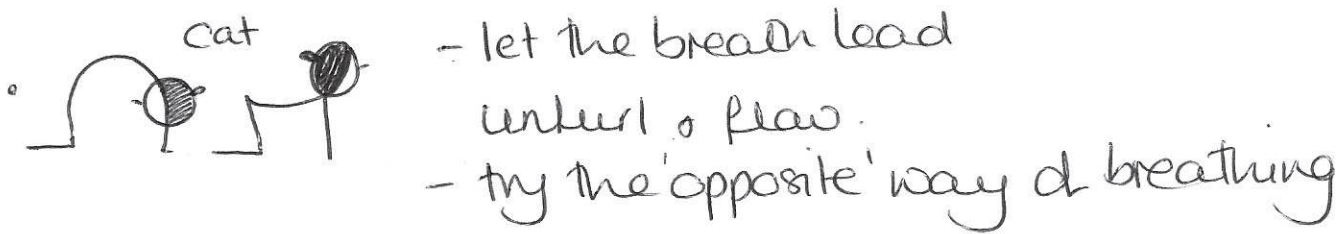 cat
- let the breath lead
unfurl & flow.
- try the 'opposite' way of breathing